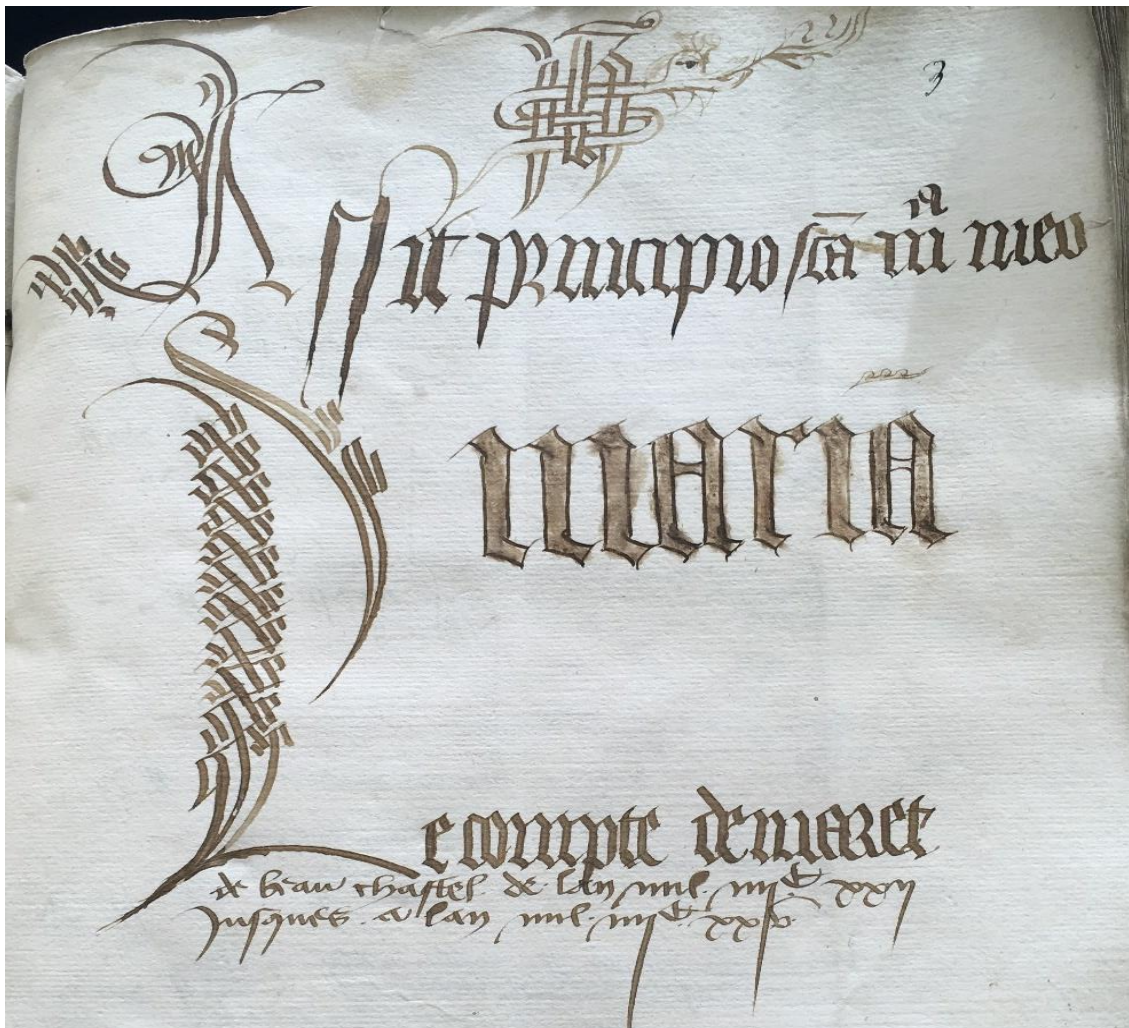 3
Assit principio sc̄a mͣ meo
maria
Le compte demaret
de beau chastel. de lan mil. iiijᶜ xxij
Jusques. a lan mil. iiijᶜ xxv